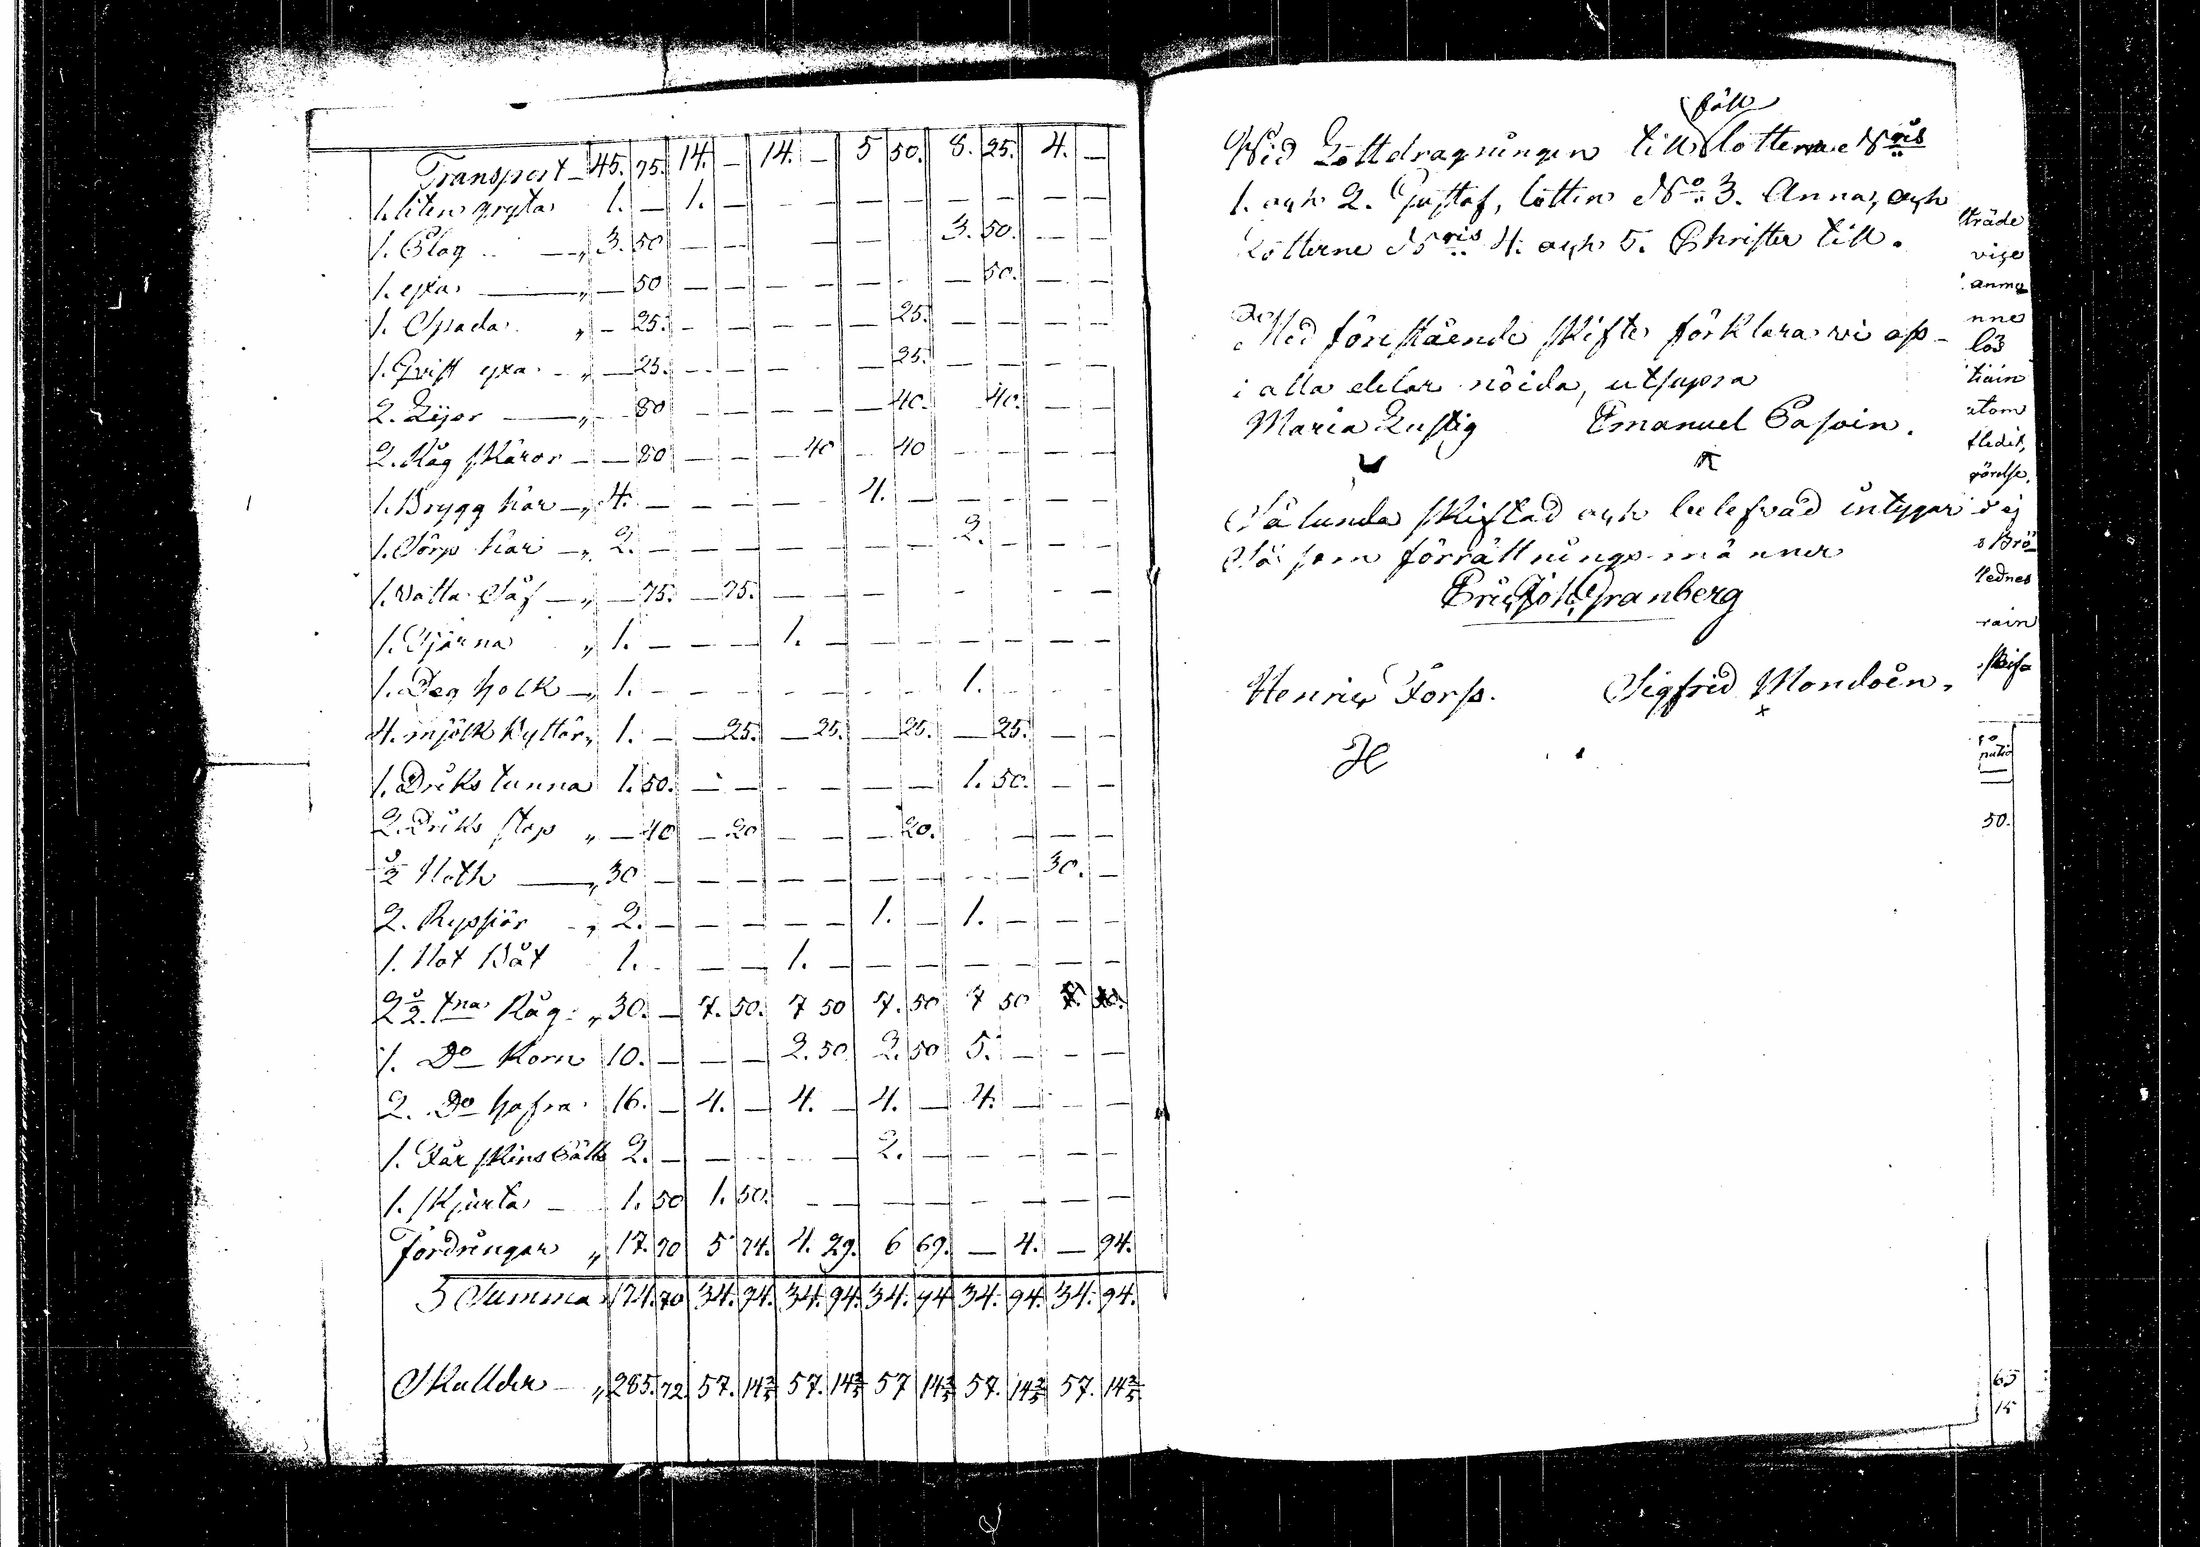 Transport 45. 75. 14. — 14. — 5 50. 8. 25. 4. —
1. liten gryta 1. — 1. — — — — — — — — —
1. Slag — „ 3. 50 — — — — — — 3. 50. — —
1. yxa — „ — 50 — — — — — — — 50. — —
1. Spada „ — 25. — — — — — 25. — — — —
1. Qvist yxa — „ — 25. — — — — — 25. — — — —
2. Lijor — „ — 80 — — — — — 40. 40. — —
2. Råg skäror — — 80 — — — 40 — 40 — — — —
1. Brygg kar — „ 4. — — — — — 4. — — — — —
1. Sörp kar — „ 2. — — — — — — — 2. — — —
1. Vatta Såf — „ — 75. — 75. — — — — — — — —
1. Tjärna „ 1. — — — 1. — — — — — — —
1. Deg holk — „ 1. — — — — — — — 1. — — —
4. mjölk byttor „ 1. — — 25. — 25. — 25. — 25. — —
1. Driks tunna 1. 50. — — — — — — 1. 50. — —
2. Driks stop „ — 40 — 20 — — — 20. — — —
Noth — „ 30 — — — — — — — — — 30. —
2. Ryssjör — „ 2. — — — — — 1. — 1. — — —
1. Not Båt 1. — — — 1. — — — — — — —
tna Råg „ 30. — 7. 50. 7 50 7. 50 7 50
1. Do Korn 10. — — — 2. 50 2. 50 5. — — —
2. Do hafra 16. — 4. — 4. — 4. — 4. — — —
1. Får skins fäll 2. — — — — — 2. — — — — —
1. skjorta — 1. 50 1. 50. — — — — — — — —
Fordringar „ 17. 70 5 74. 4. 29. 6 69. — 4. — 94.
Summa 174. 70 34. 94. 34. 94. 34. 94 34. 94. 34. 94.
Skulder — „ 285. 72 57. 14 2/5 57. 14 2/5 57 14 2/5 57. 14 2/5 57. 14 2/5
föll
Wid Lottdragningen till lotterne Nris
1. och 2. Gustaf, lotten No 3. Anna, och
Lotterne Nris 4. och 5. Christer till.
Med förestående skifte förklara vi oss
i alla delar nöida, utsupra
Maria Lustig Emanuel Pasoin.
Sålunda skiftad och belefvad intygar
Så som förrättnings männer
Eric Joh. Granberg
Henric Forss. Sigfrid Mondoin.
H
träde
vice
anma
nne
lös
tiain
utom
fledit,
görelse.
ej
Brö
tednes
rain
skif
50.
65
15